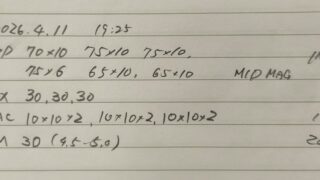 2026.4.11 19:25
70×10 75×10 75×10,
75×6 65×10, 65×10 MID MAG
30, 30, 30
10×10×2, 10×10×2, 10×10×2
30 (4.5-5.0)